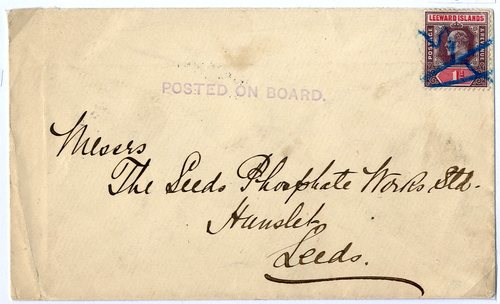 LEEWARD ISLANDS
POSTAGE
& REVENUE
1d
POSTED ON BOARD.
Messrs
The Leeds Phosphate Works Ltd.
Hunslet
Leeds.